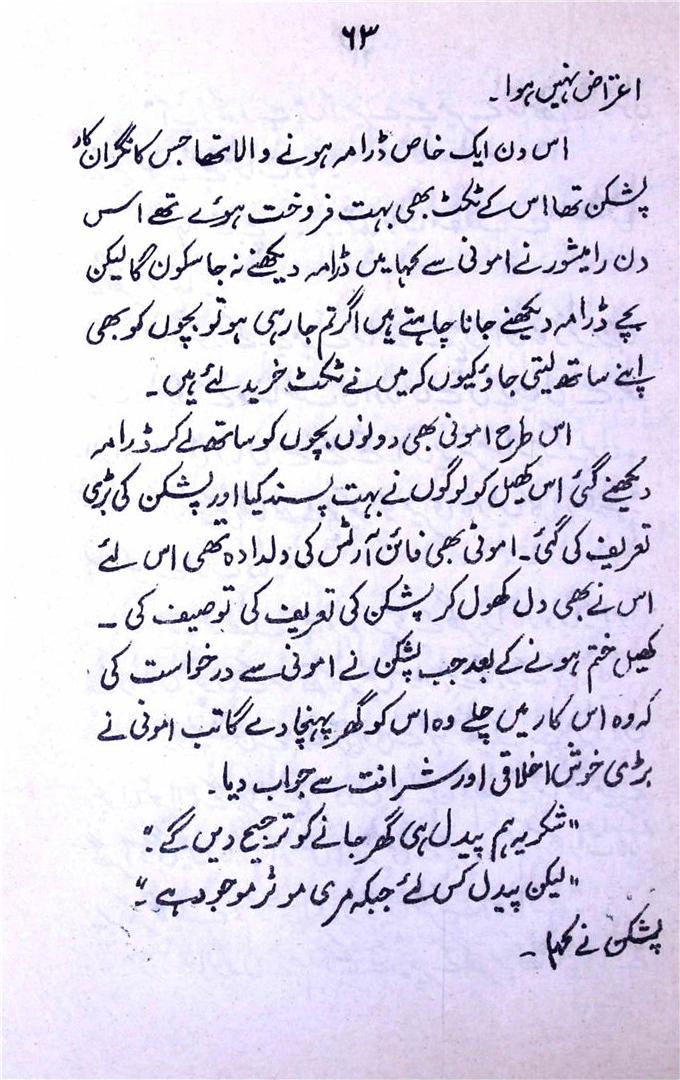 ۶۳
اعتراض نہیں ہوا۔
اس دن ایک خاص ڈرامہ ہونے والا تھا جس کا نگران کار
پشکن تھا اس کے ٹکٹ بھی بہت فروخت ہوئے تھے اسس
دن رامیشور نے امونی سے کہا میں ڈرامہ دیکھنے نہ جا سکون گا لیکن
بچے ڈرامہ دیکھنے جانا چاہتے ہیں اگر تم جا رہی ہو تو بچوں کو بھی
اپنے ساتھ لیتی جاؤ کیوں کہ میں نے ٹکٹ خرید لئے ہیں۔
اس طرح امونی بھی دونوں بچوں کو ساتھ لے کر ڈرامہ
دیکھنے گئی اس کھیل کو لوگوں نے بہت پسند کیا اور پشکن کی بڑی
تعریف کی گئی۔ امونی بھی فائن آرٹس کی دلدادہ تھی اس لئے
اس نے بھی دل کھول کر پشکن کی تعریف کی توصیف کی ۔
کھیل ختم ہونے کے بعد جب پشکن نے امونی سے درخواست کی
کہ وہ اس کار میں چلے وہ اس کو گھر پہنچا دے گا تب امونی نے
بڑی خوش اخلاقی اور شرافت سے جواب دیا۔
"شکریہ ہم پیدل ہی گھر جانے کو ترجیح دیں گے۔"
"لیکن پیدل کس لئے جبکہ مری موٹر موجود ہے۔"
پشکن نے کہا ۔